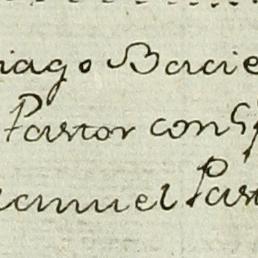 iago Bacie
Pastor con
anuel Past